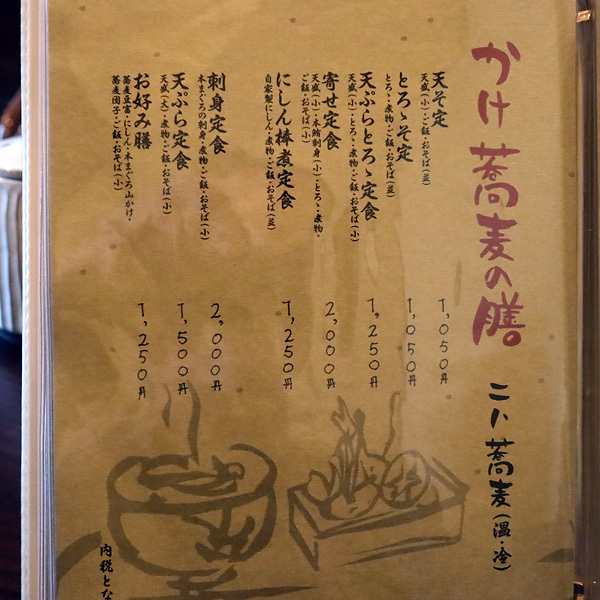 かけ蕎麦の膳 二八蕎麦(温・冷)
天そ定 1,050円
天盛(小)・ご飯・おそば(並)
とろゝそ定 1,050円
とろゝ・煮物・ご飯・おそば(並)
天ぷらとろゝ定食 1,250円
天盛(小)・とろゝ・煮物・ご飯・おそば(小)
寄せ定食 2,000円
天盛(小)・本鮪刺身(小)・とろゝ・煮物・
ご飯・おそば(小)
にしん棒煮定食 1,250円
自家製にしん・煮物・ご飯・おそば(並)
刺身定食 2,000円
本まぐろの刺身・煮物・ご飯・おそば(小)
天ぷら定食 1,500円
天盛(大)・煮物・ご飯・おそば(小)
お好み膳 1,250円
蕎麦豆富・にしん・本まぐろ山かけ・
蕎麦団子・ご飯・おそば(小)
内税とな